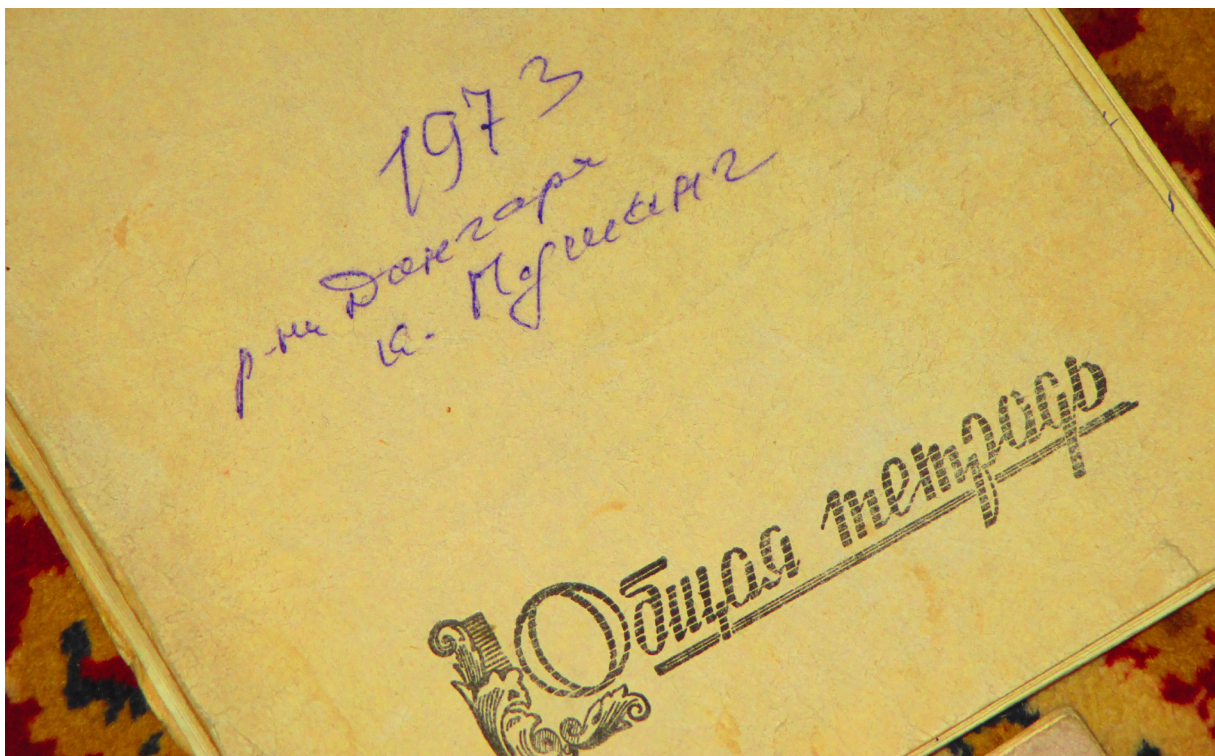 1973
р-ни Дангара
к. Пушинг
Общая тетрадь